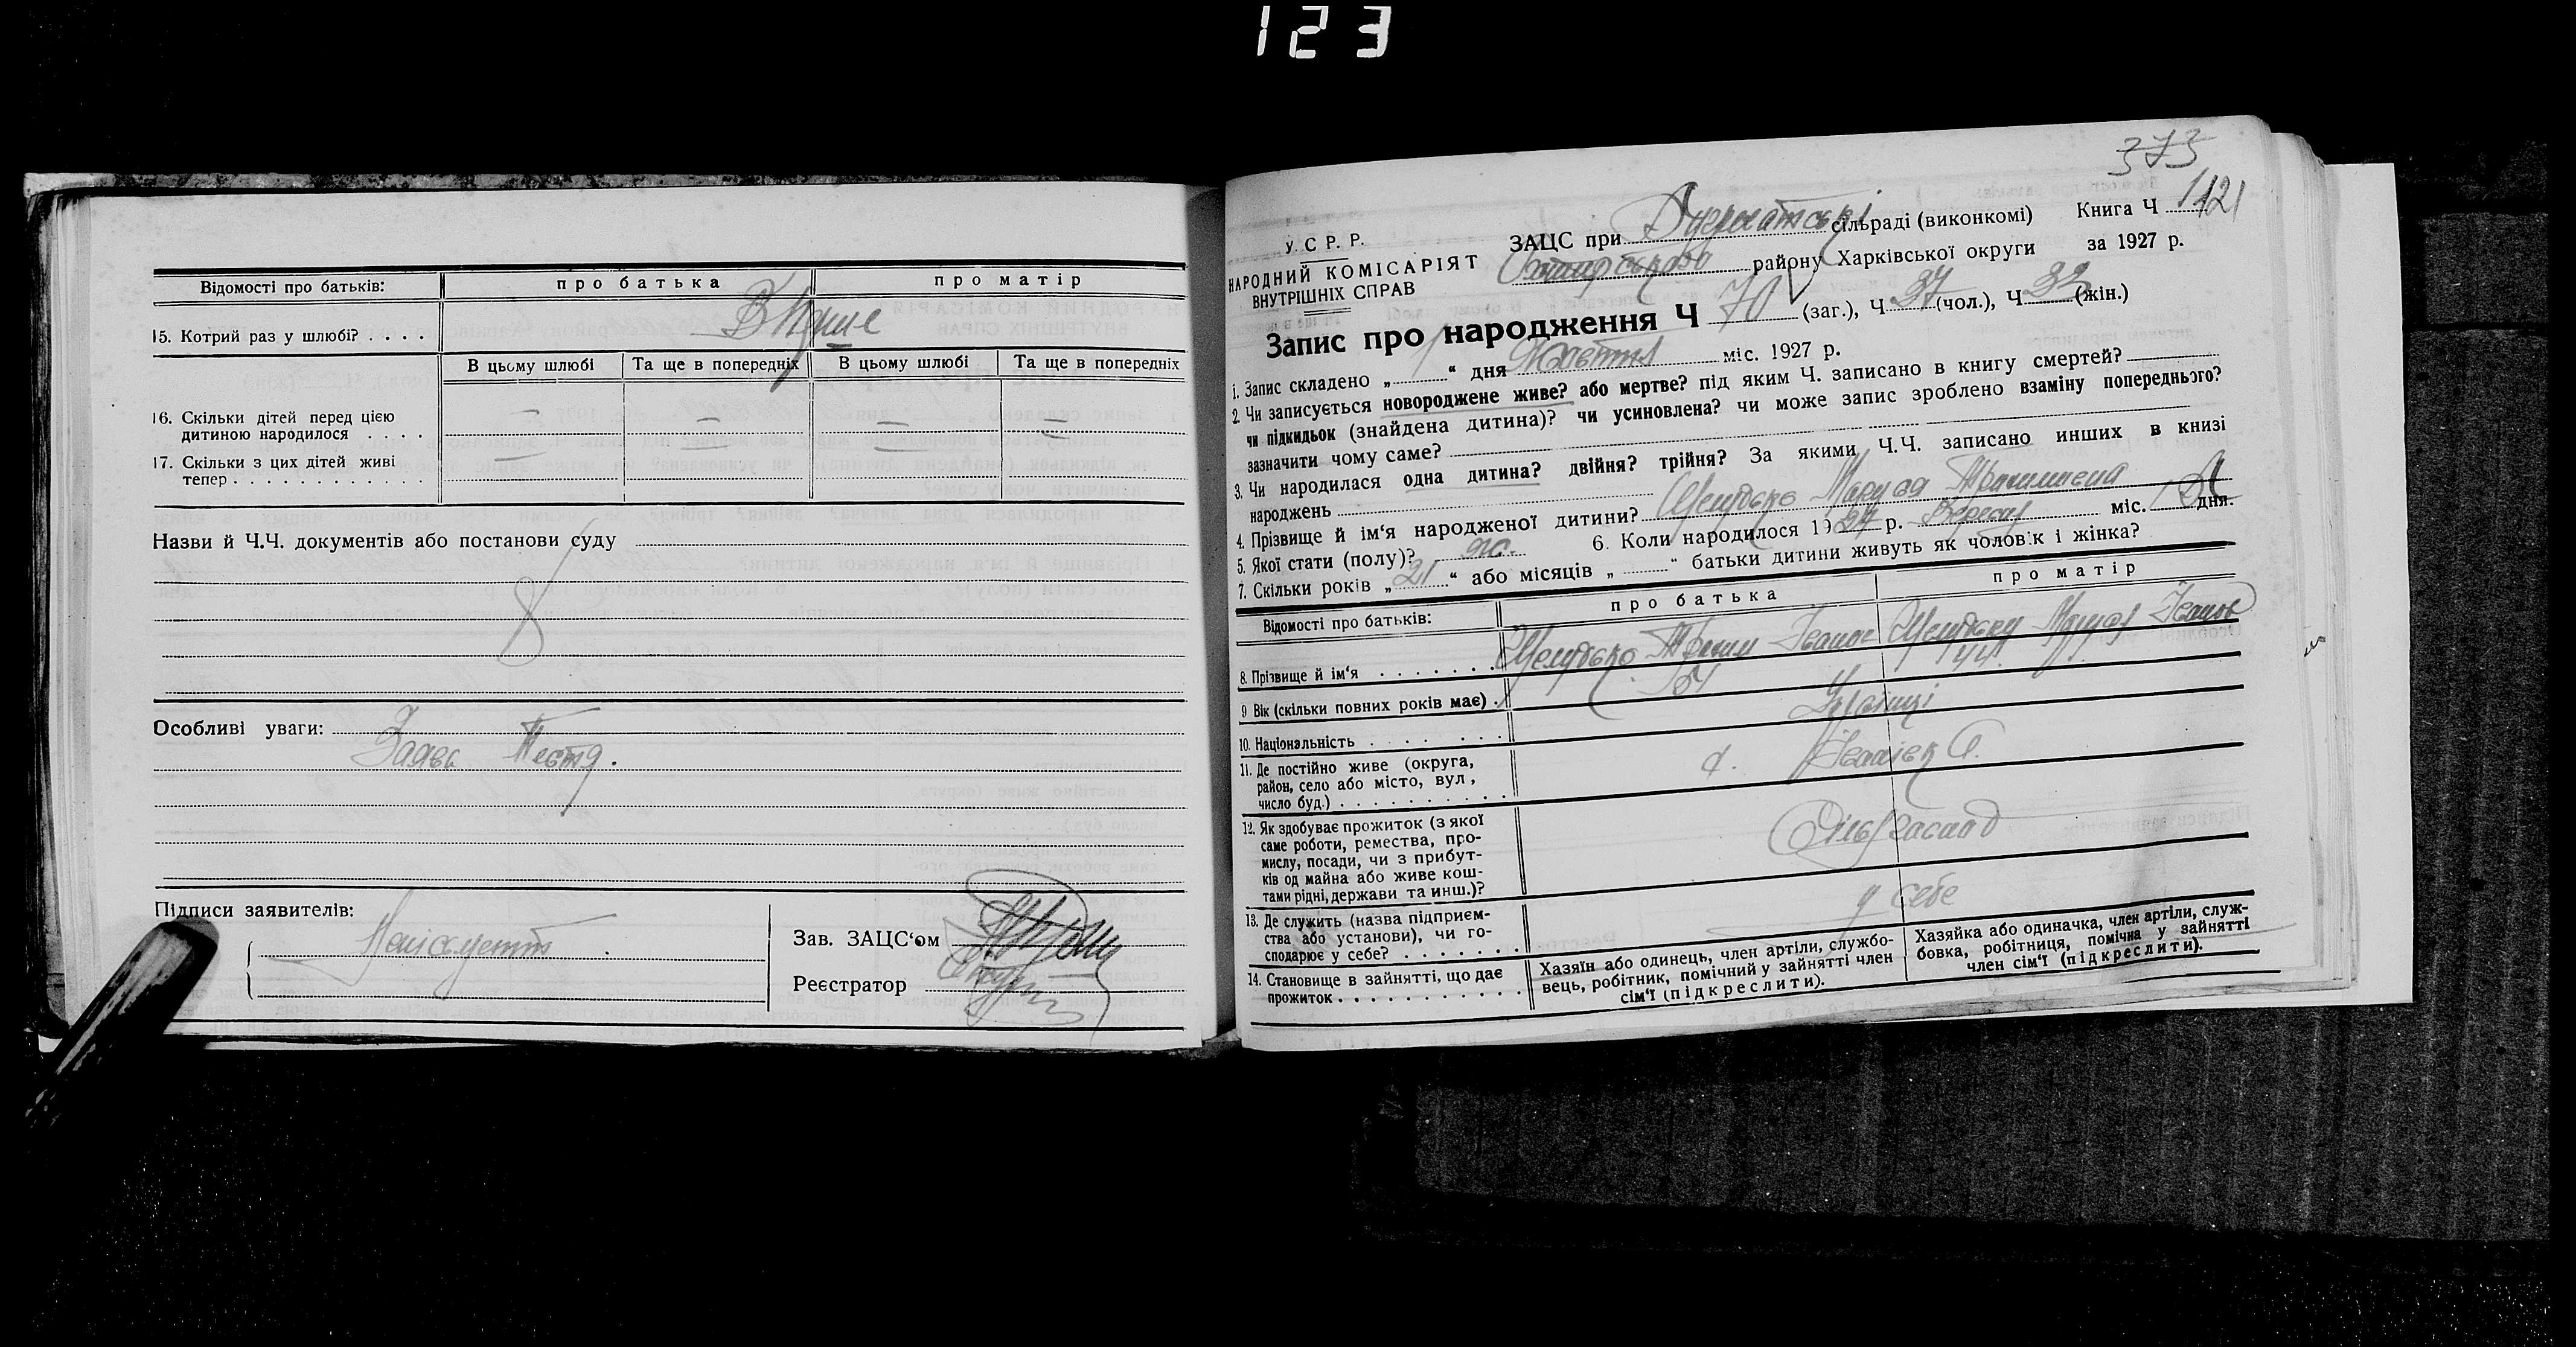 123
Відомості про батьків: про батька про матір
15. Котрий раз у шлюбі? . . . . Вперше
В цьому шлюбі Та ще в попередніх В цьому шлюбі Та ще в попередніх
16. Скільки дітей перед цією
дитиною народилося . . . . — — — —
17. Скільки з цих дітей живі
тепер . . . . . . . . . . . . . — — — —
Назви й Ч.Ч. документів або постанови суду
Особливі уваги:
Заява
Підписи заявителів:
Неписьменні
Зав. ЗАЦС‘ом
Реєстратор
373
У. С Р. Р.
НАРОДНИЙ КОМІСАРІЯТ
ВНУТРІШНІХ СПРАВ
ЗАЦС при сільраді (виконкомі) Книга Ч 1 121
району Харківської округи за 1927 р.
Запис про народження Ч 70 (заг.), Ч 37 (чол.), Ч 33 (жін.)
1. Запис складено „ 1 “ дня Жовтня міс. 1927 р.
2. Чи записується новороджене живе? або мертве? під яким Ч. записано в книгу смертей?
чи підкидьок (знайдена дитина)? чи усиновлена? чи може запис зроблено взаміну попереднього?
зазначити чому саме?
3. Чи народилася одна дитина? двійня? трійня? За якими Ч.Ч. записано инших в книзі
народжень
4. Прізвище й ім‘я народженої дитини? Маруся Трохимівна
5. Якої стати (полу)? жо. 6. Коли народилося 1927 р. Вересня міс. дня.
7. Скільки років „ 21 “ або місяців „ “ батьки дитини живуть як чолов'к і жінка?
Відомості про батьків: про батька про матір
8. Прізвище й ім‘я . . . . . . . Трохим Іванов Мария Іванов
9 Вік (скільки повних років має) . 44
10. Національність . . . . . . . Українці
11. Де постійно живе (округа,
район, село або місто, вул,
число буд.) . . . . . . . . . . . с.
12. Як здобуває прожиток (з якої
саме роботи, ремества, про-
мислу, посади, чи з прибут-
ків од майна або живе кош-
тами рідні, держави та инш.)?
13. Де служить (назва підприєм-
ства або установи), чи го-
сподарює у себе? . . . . . . . у себе
14. Становище в зайнятті, що дає
прожиток . . . . . . . . . . . .
Хазяїн або одинець, член артіли, службо-
вець, робітник, помічний у зайнятті член
сім‘ї (підкреслити).
Хазяйка або одиначка, член артіли, служ-
бовка, робітниця, помічна у зайнятті
член сім‘ї (підкреслити).